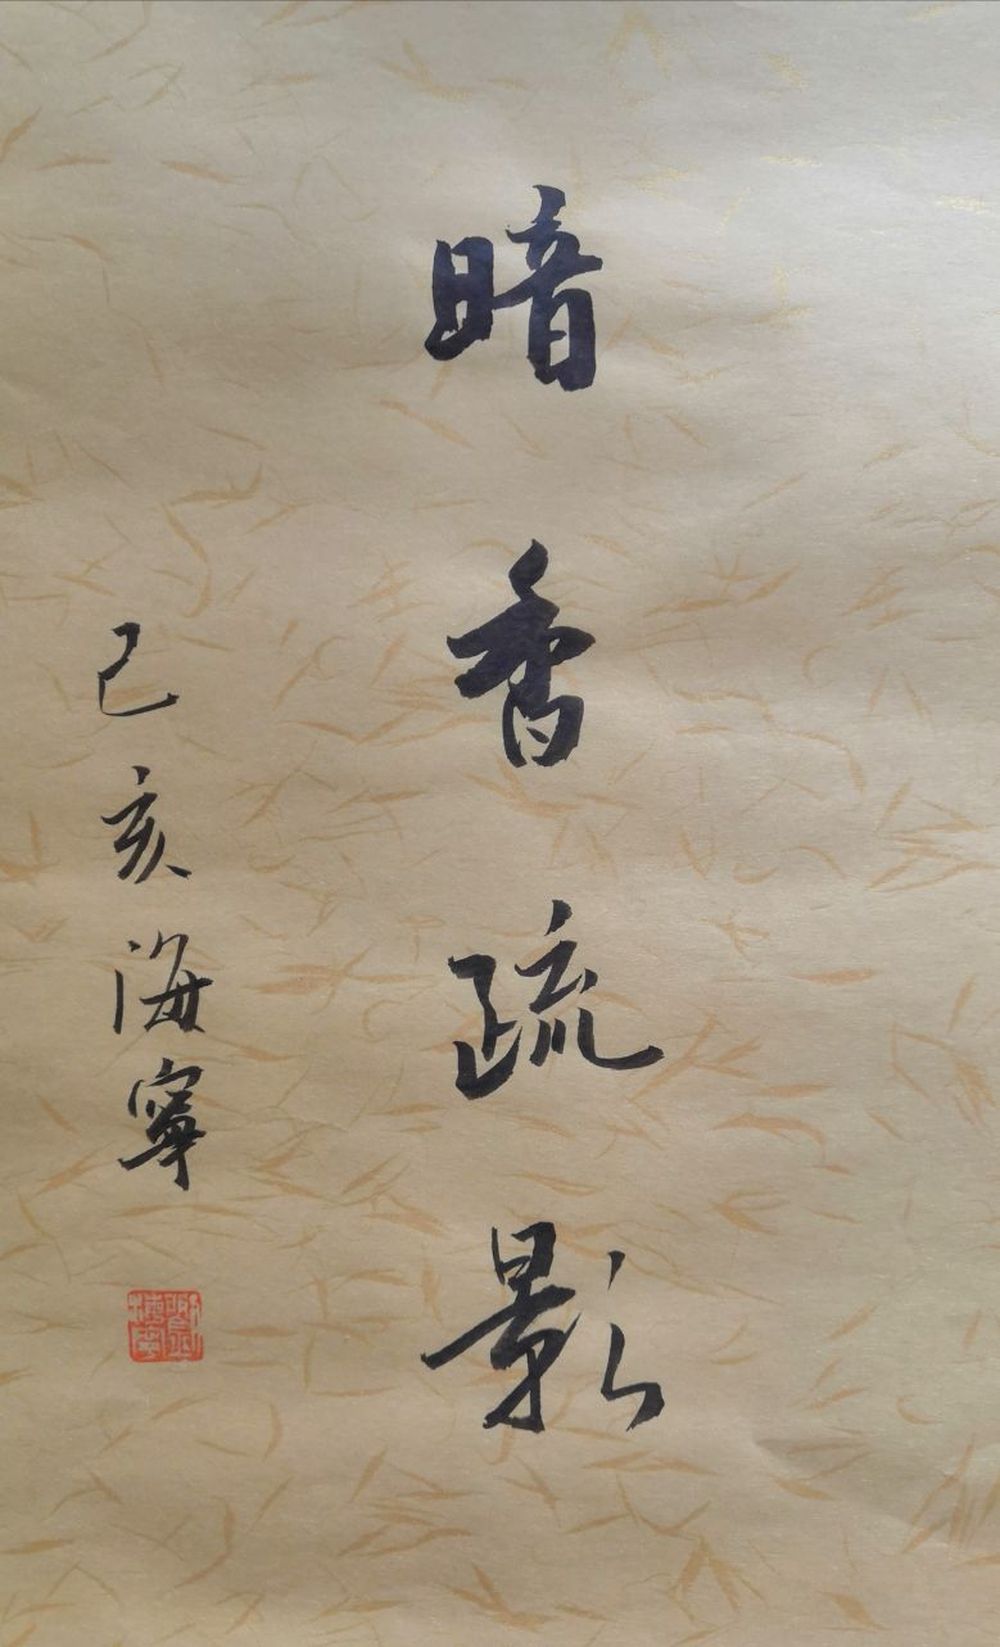 暗香疏影
己亥海寧